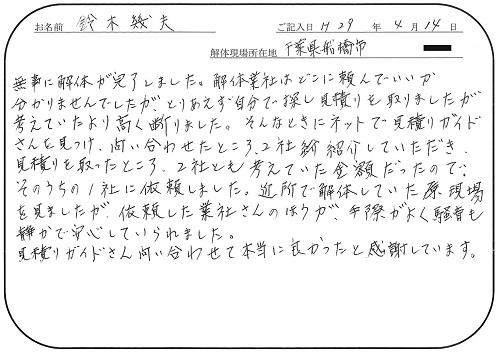 お名前 鈴木幾夫 ご記入日 H29 年 4 月 14 日
解体現場所在地 千葉県船橋市
無事に解体が完了しました。解体業社はどこに頼んでいいか
分かりませんでしたがとりあえず自分で探し見積りを取りましたが
考えていたより高く断りました。そんなときにネットで見積りガイド
さんを見つけ、問い合わせたところ、2社紹介していただき、
見積りを取ったところ、2社とも考えていた金額だったので、
そのうちの1社に依頼しました。近所で解体していた現場
を見ましたが、依頼した業社さんのほうが手際がよく騒音も
静かで安心していられました。
見積りガイドさん問い合わせて本当に良かったと感謝しています。